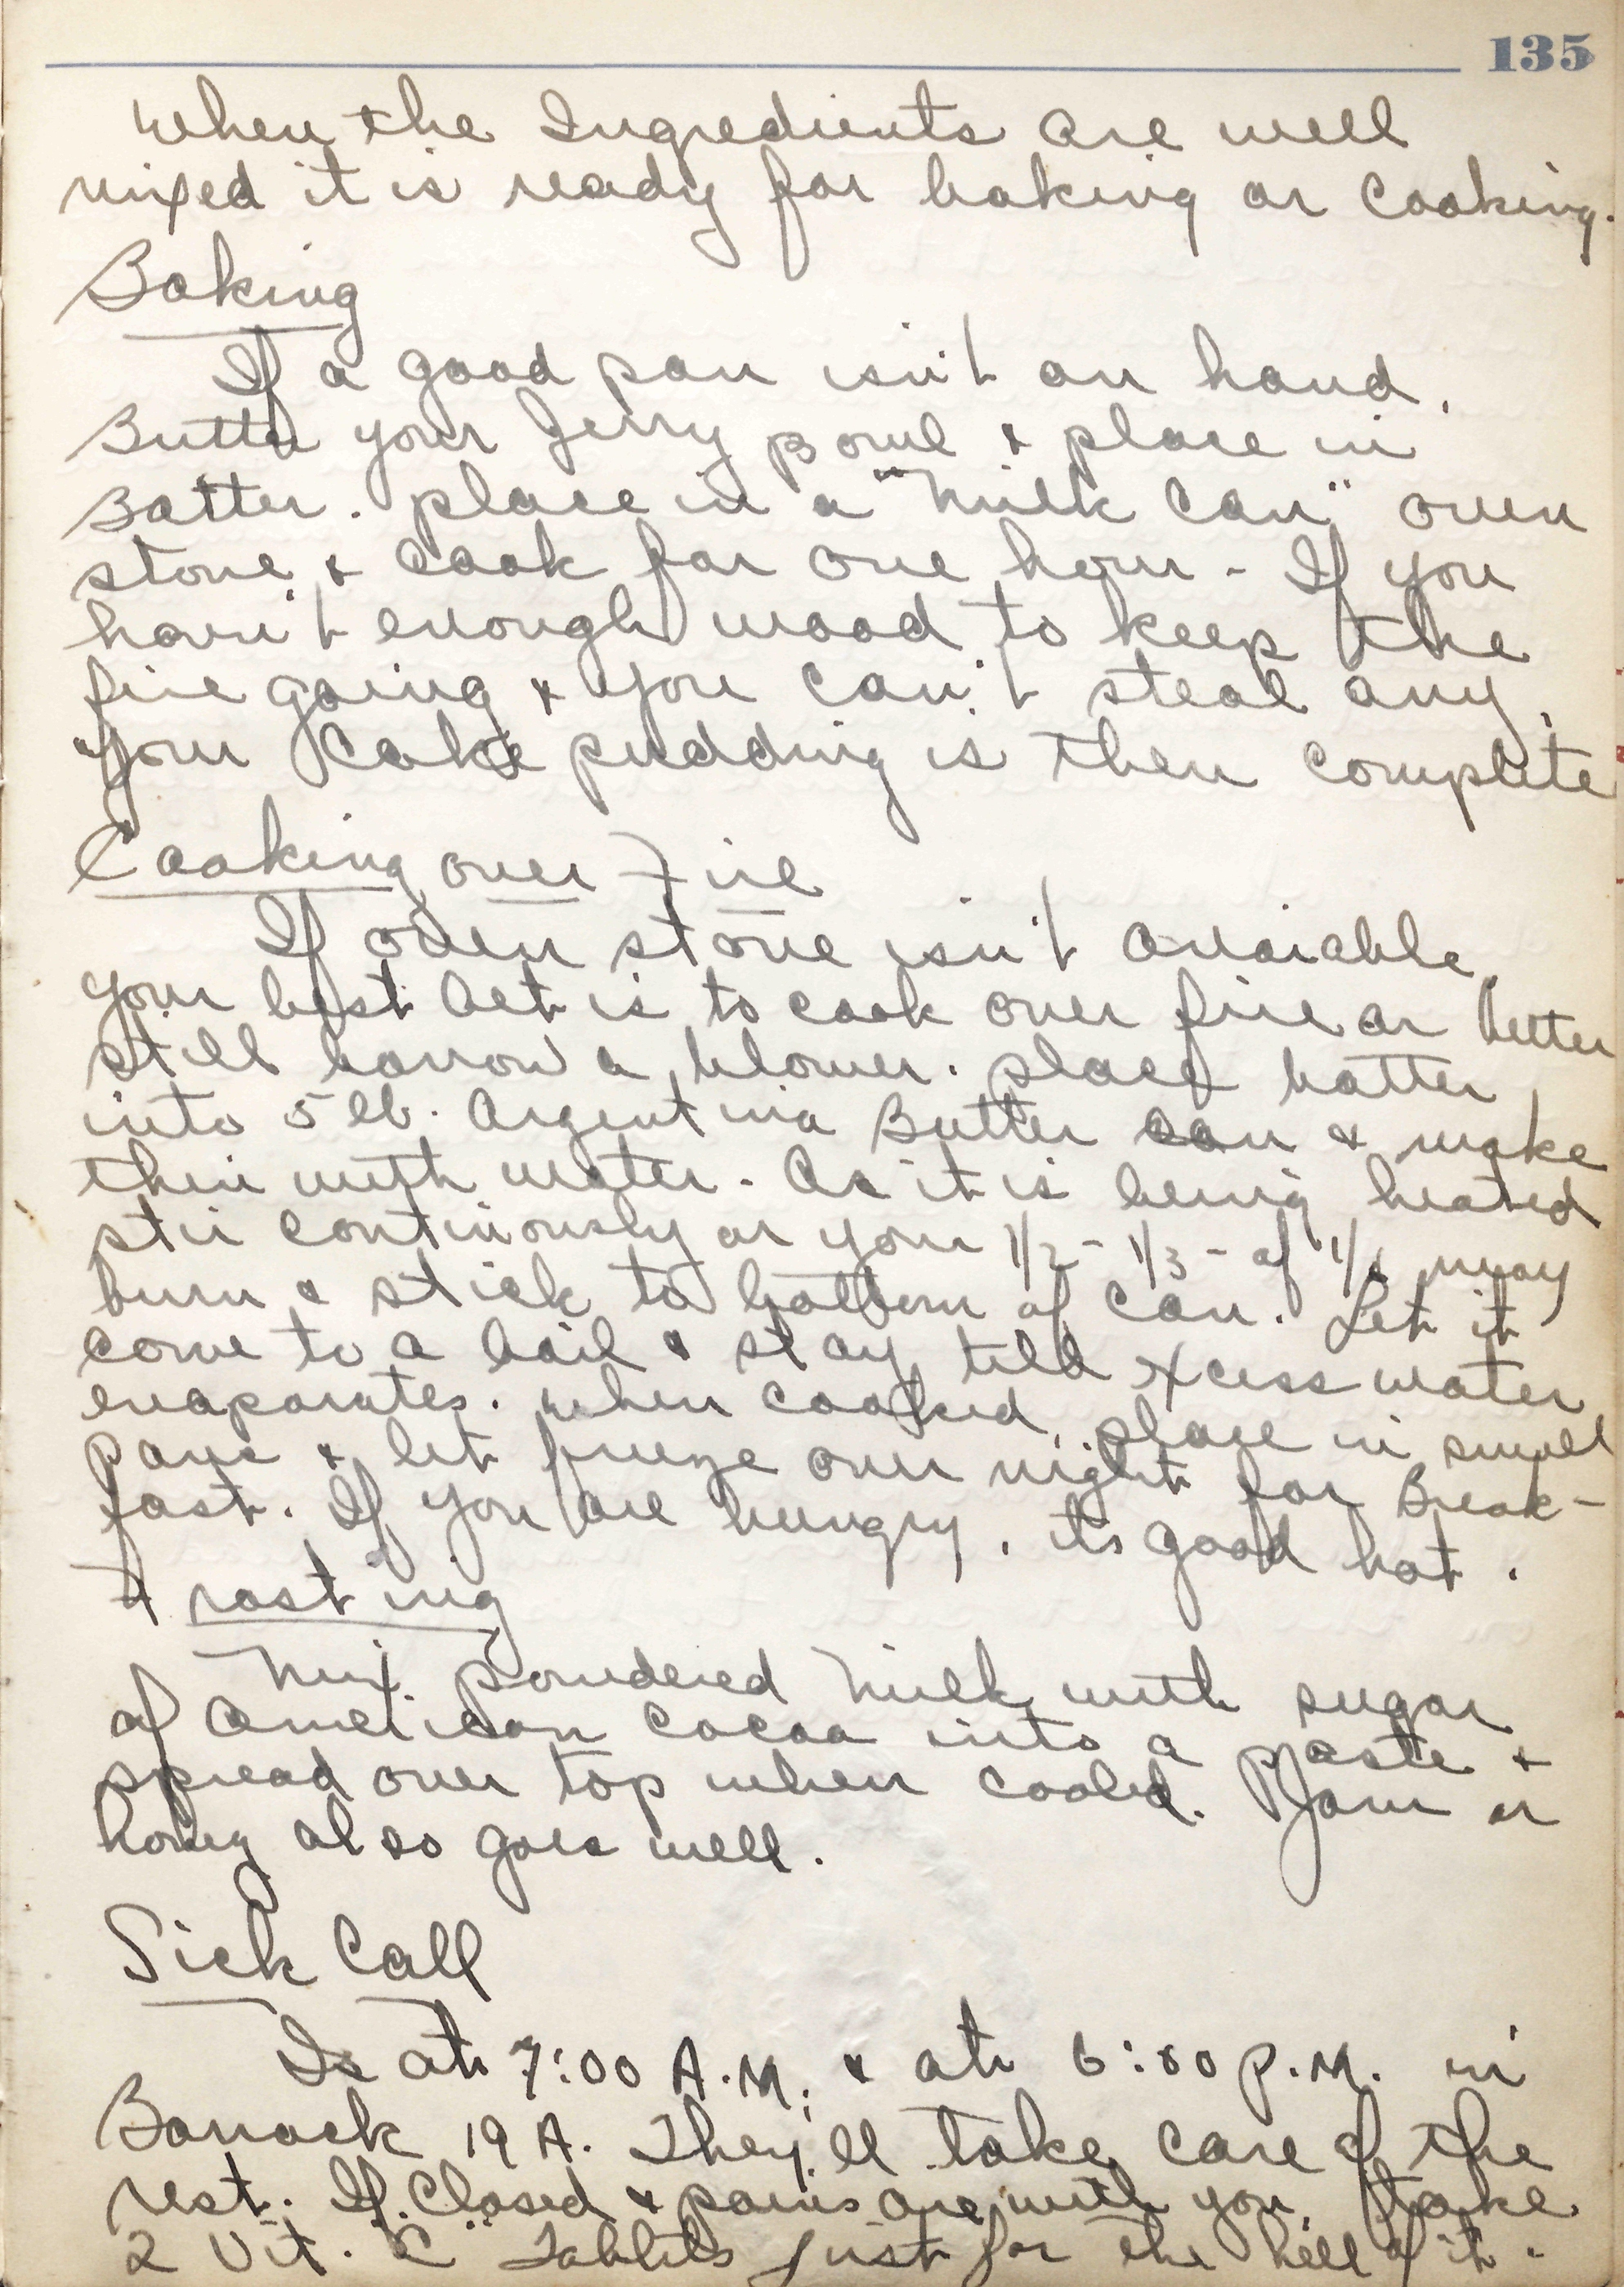 135
When the Ingredients are well
mixed it is ready for baking or Cooking.
Baking
If a good pan isn't on hand,
Butter your Jerry Bowl & place in
Batter. place in a "Milk Can" oven
stove & cook for one hour - If you
havn't enough wood to keep the
fire going & you can't steal any,
your cake pudding is then complete
Cooking over Fire
If oven stove isn't avaiable,
your best bet is to cook over fire or better
still borrow a blower. place batter
into 5 lb. Argentina Butter can & make
thin with water. As it is being heated
stir continously or your 1/2 - 1/3 - of 1/1 may
burn & stick to bottom of can. Let it
come to a boil & stay till excess water
evaporates. When cooked, place in small
pans & let freeze over night for Break-
fast. If you are hungry, its good hot.
Frosting
Mix powdered Milk with sugar
of American cocoa into a paste &
spread over top when cooled. Jam or
honey also goes well.
Sick Call
Is at 7:00 A.M. & at 6:00 P.M. in
Barrack 19 A. They'll take care of the
rest. If Closed & pains are with you, take
2 Vit. "C" Tablits just for the hell of it.